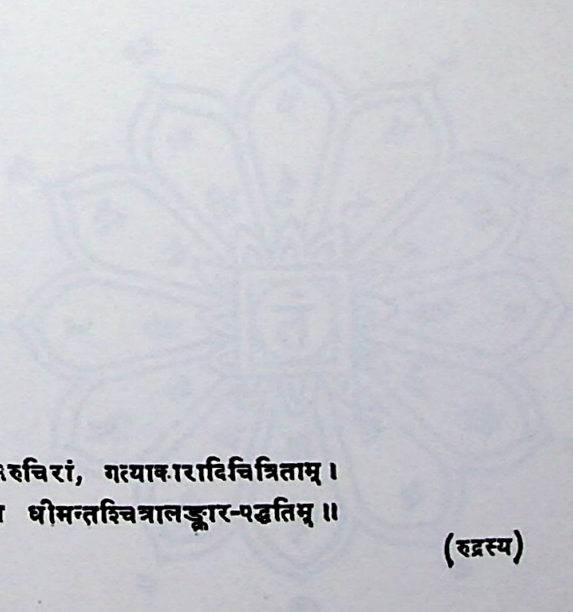 रुचिरां, गत्याकारादिचित्रिताम् ।
धीमन्तश्चित्रालङ्कार-पद्धतिम् ॥
(रुद्रस्य)